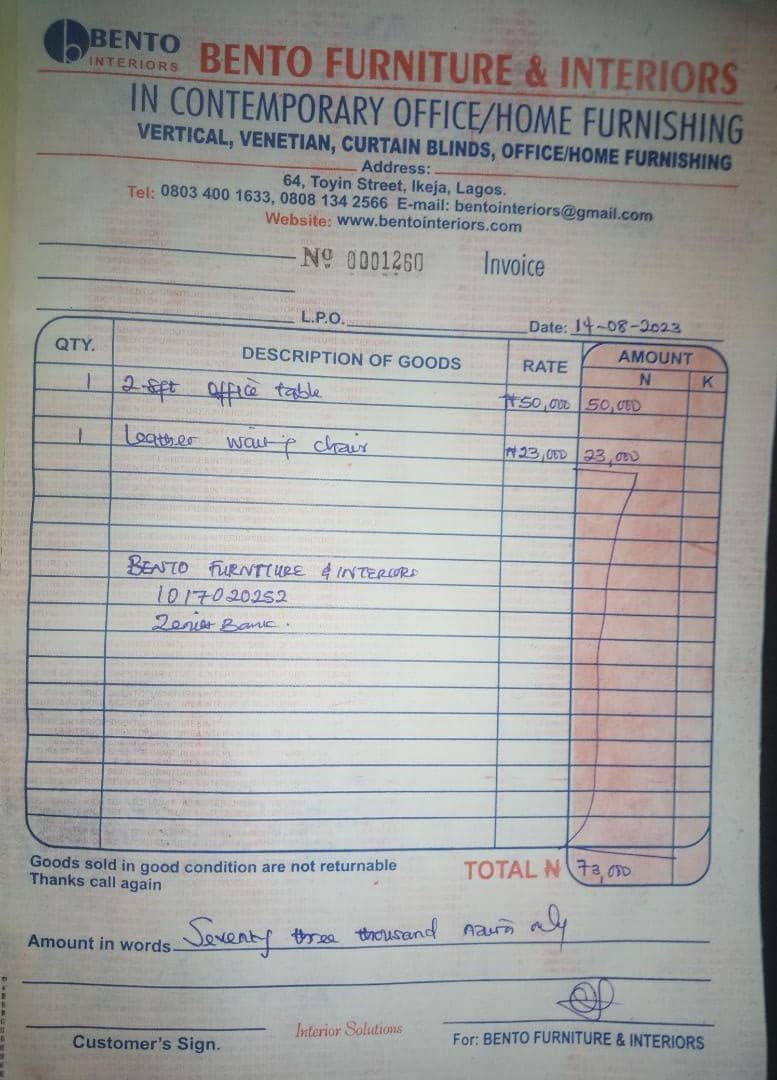 BENTO
INTERIORS
BENTO FURNITURE & INTERIORS
IN CONTEMPORARY OFFICE/HOME FURNISHING
VERTICAL, VENETIAN, CURTAIN BLINDS, OFFICE/HOME FURNISHING
Address:
64, Toyin Street, Ikeja, Lagos.
Tel: 0803 400 1633, 0808 134 2566 E-mail: bentointeriors@gmail.com
Website: www.bentointeriors.com
Nº 0001260 Invoice
L.P.O. Date: 14-08-2023
QTY. DESCRIPTION OF GOODS RATE AMOUNT
N K
1 office table ₦50,000 50,000
1 Leather chair ₦23,000 23,000
BENTO FURNITURE & INTERIORS
1017020252
Zenith Bank.
Goods sold in good condition are not returnable
Thanks call again
TOTAL ₦ 73,000
Amount in words Seventy three thousand naira only
Customer's Sign.
Interior Solutions
For: BENTO FURNITURE & INTERIORS